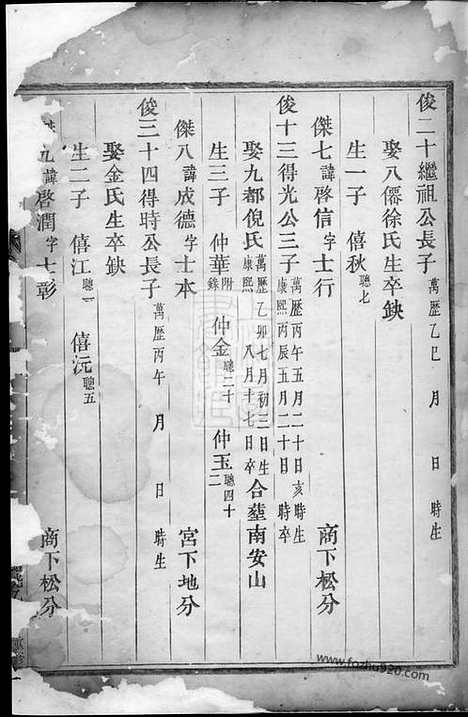 俊二十繼祖公長子 萬歷乙巳 月 日 時生
娶八僊徐氏生卒缺
生一子 僖秋 聰七
傑七 諱 啓信 字 士行 商下松分
俊十三得光公三子 萬歷丙午五月二十日亥時生 康熙丙辰五月二十日 時卒
娶九都倪氏 萬歷乙卯七月初三日生 康熙 八月十七日卒 合塟南安山
生三子 仲華 附錄 仲金 聰二十 仲玉 聰四十二
傑八 諱 成德 字 士本 宮下地分
俊三十四得時公長子 萬歷丙午 月 日 時生
娶金氏生卒缺
生二子 僖江 聰一 僖沅 聰五
九 諱 啓潤 字 士彰 商下松分
www.fozhu920.com